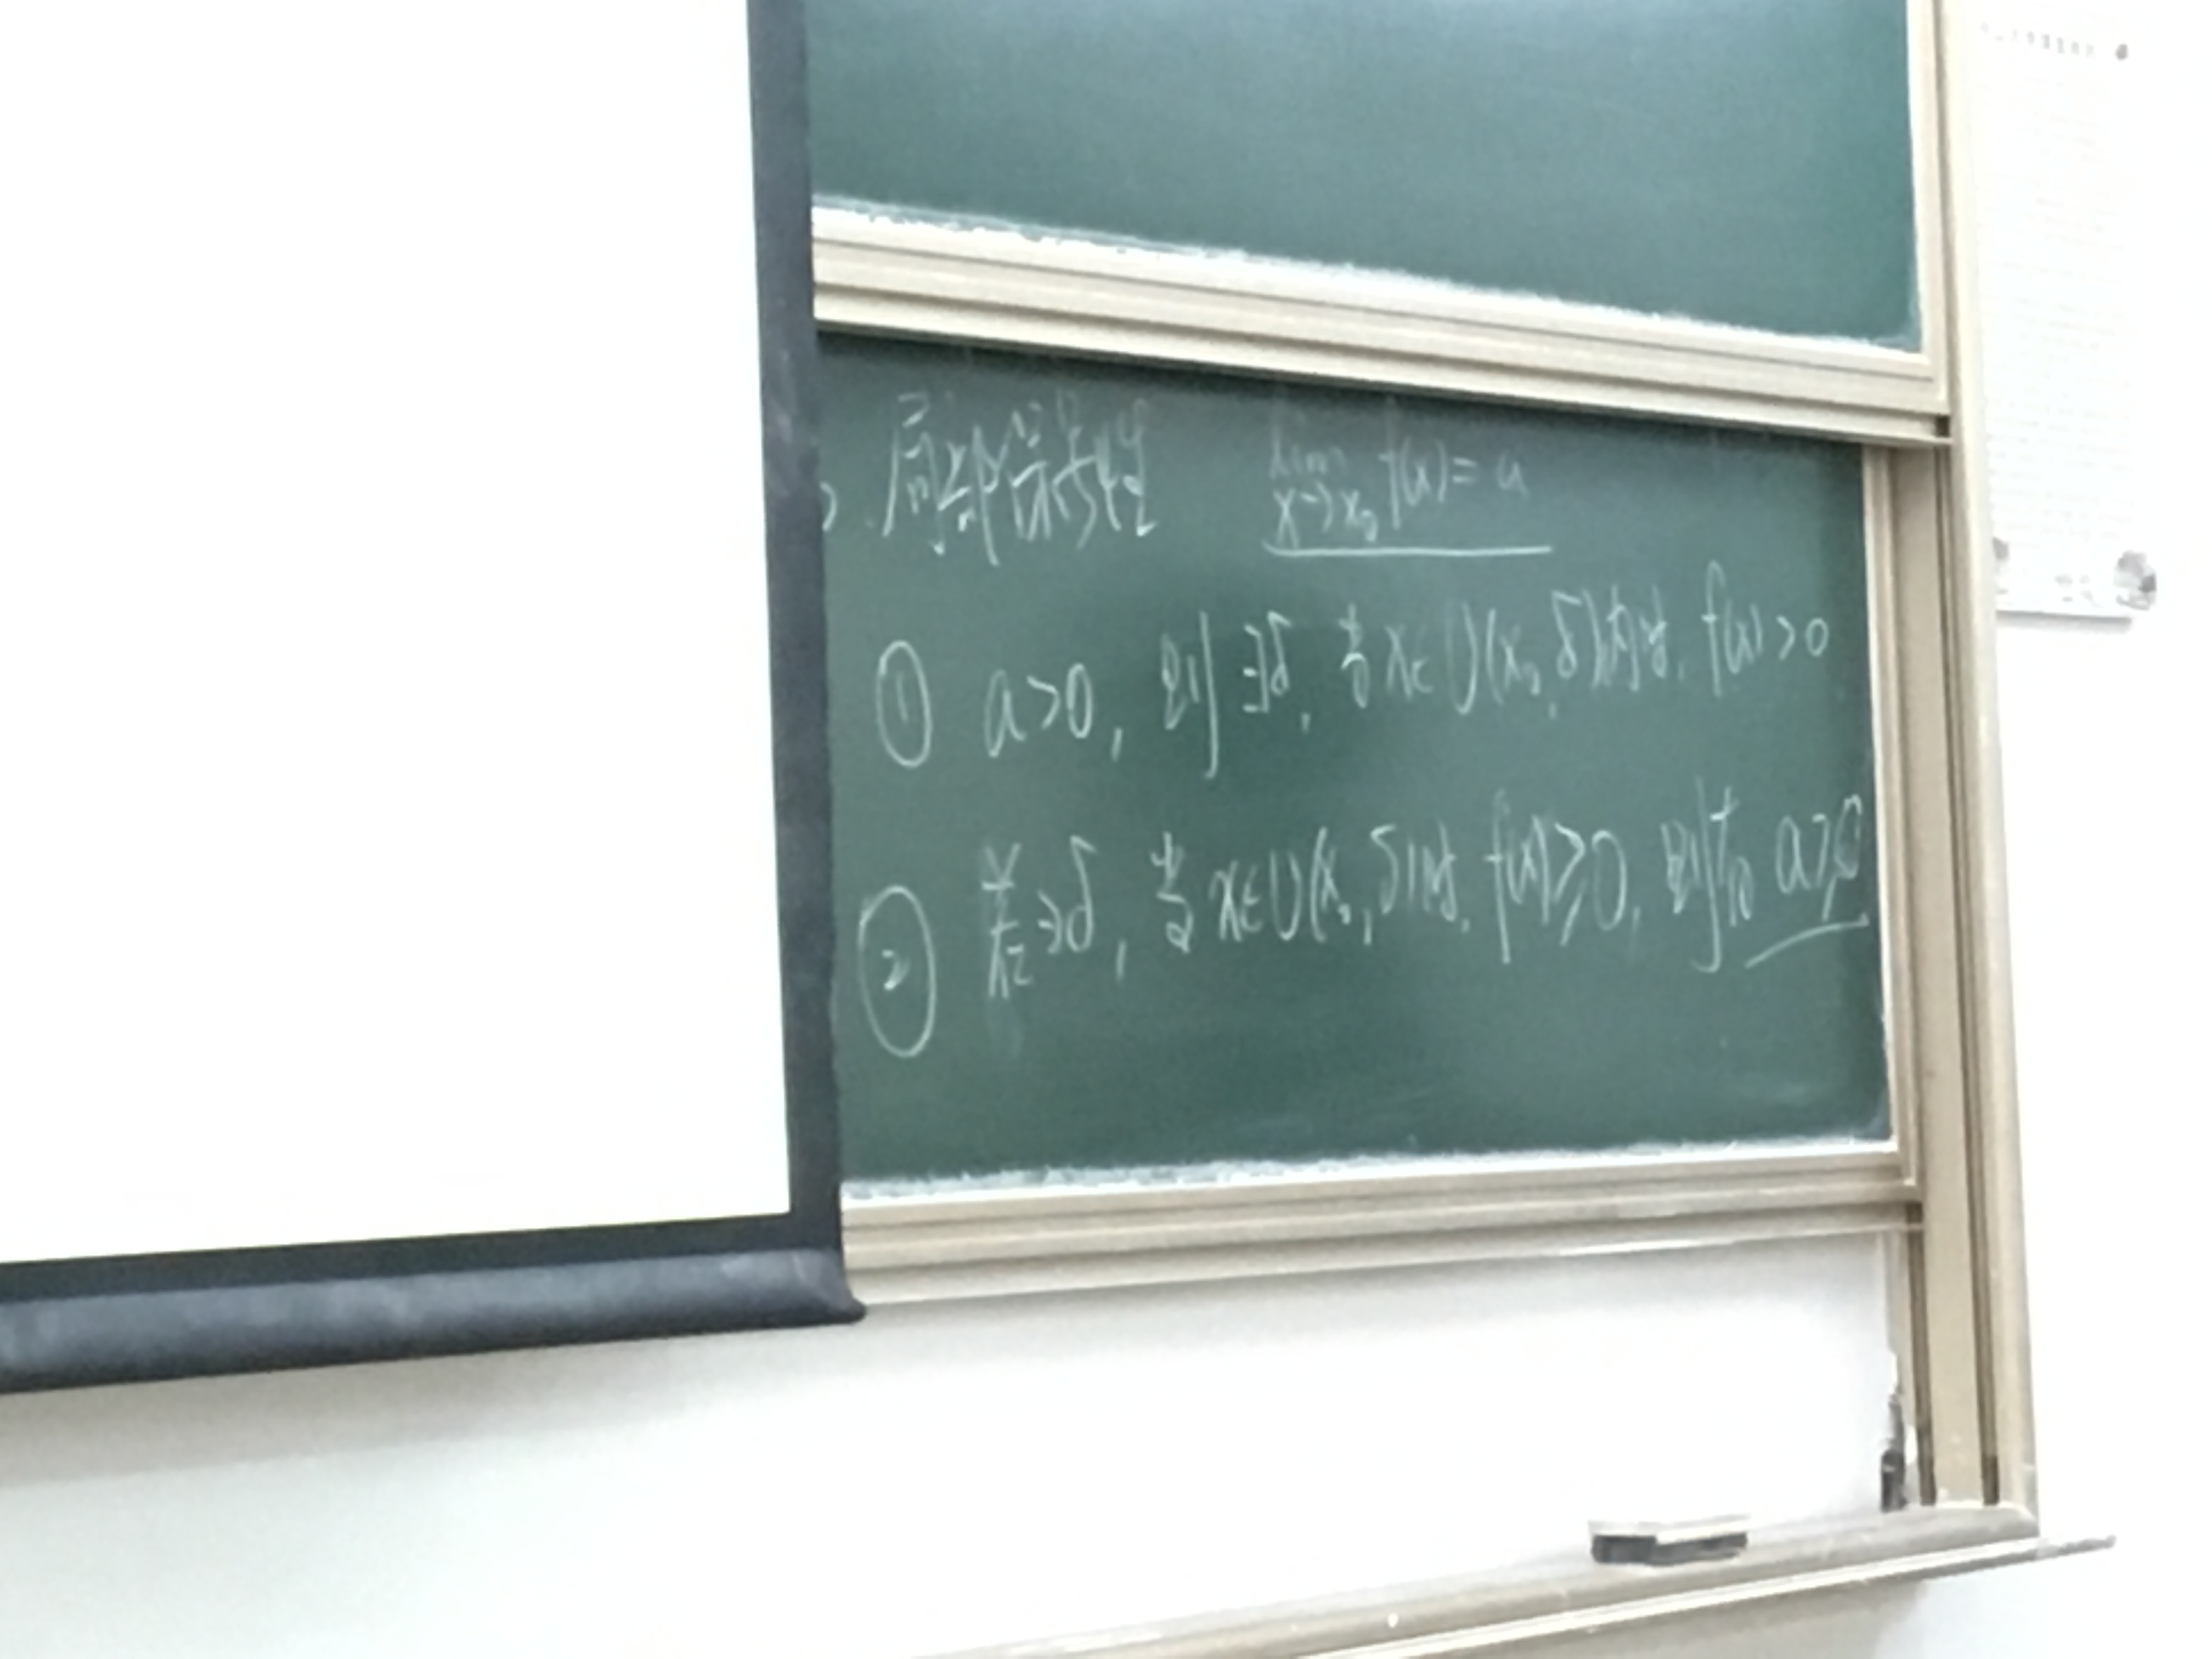 . 局部保号性 lim x→x₀ f(x)=a
① a>0, 则∃δ, 当x∈U(x₀,δ)内时, f(x)>0
② 若∃δ, 当x∈U(x₀,δ)时, f(x)≥0, 则有 a≥0